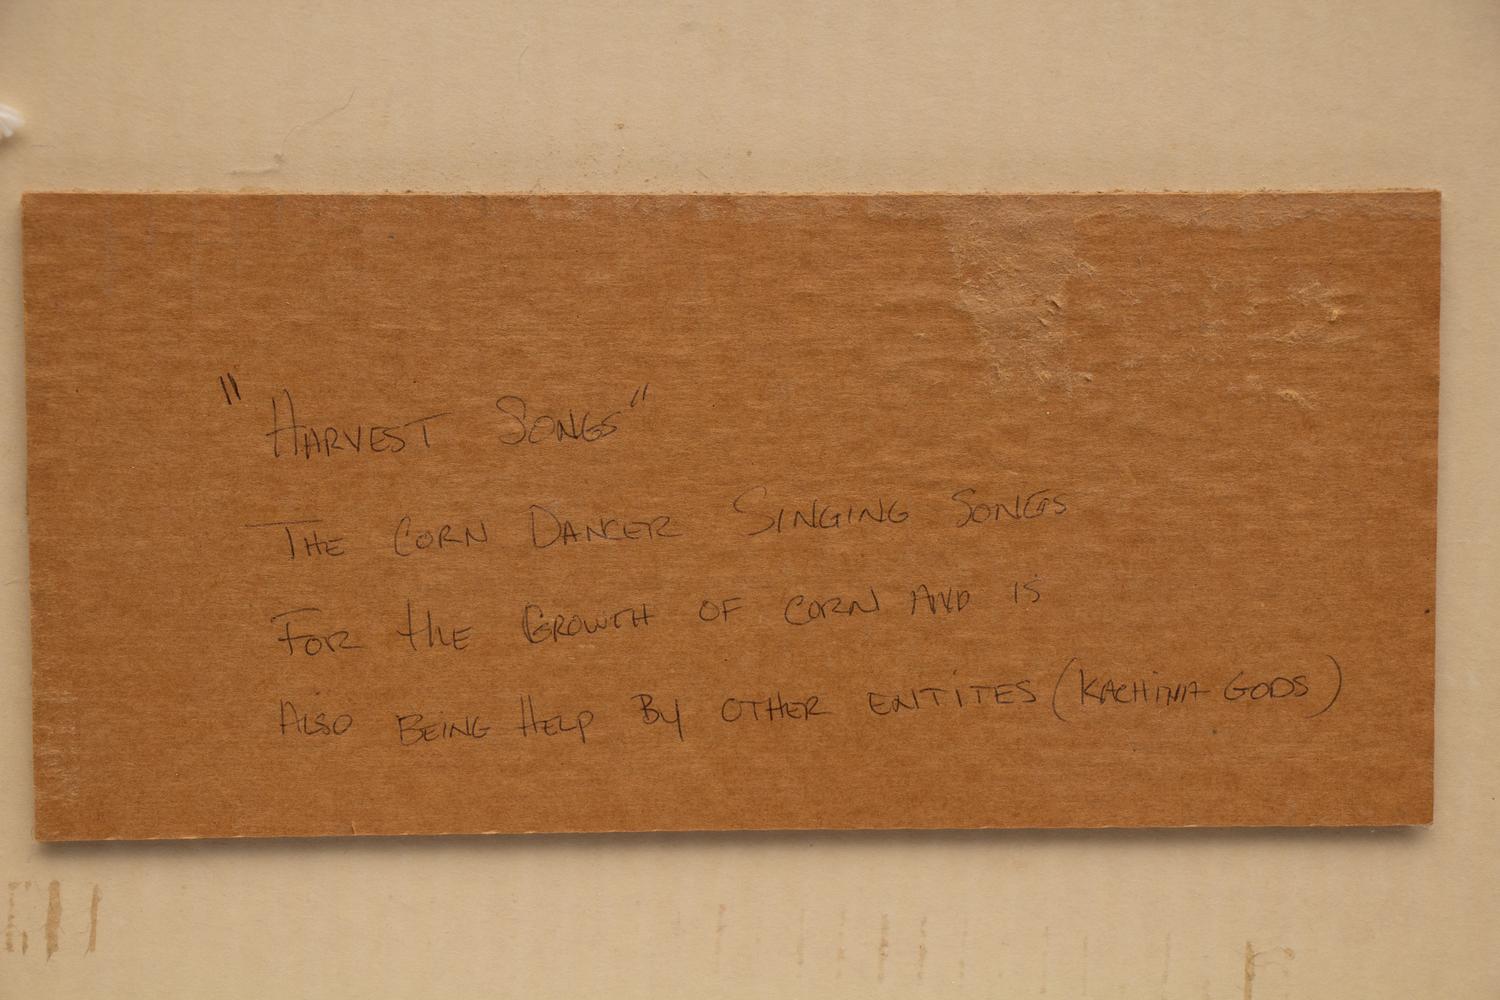 "Harvest Songs"
The Corn Dancer Singing Songs
For the Growth of Corn and is
Also Being Help By other entites (Kachina Gods)